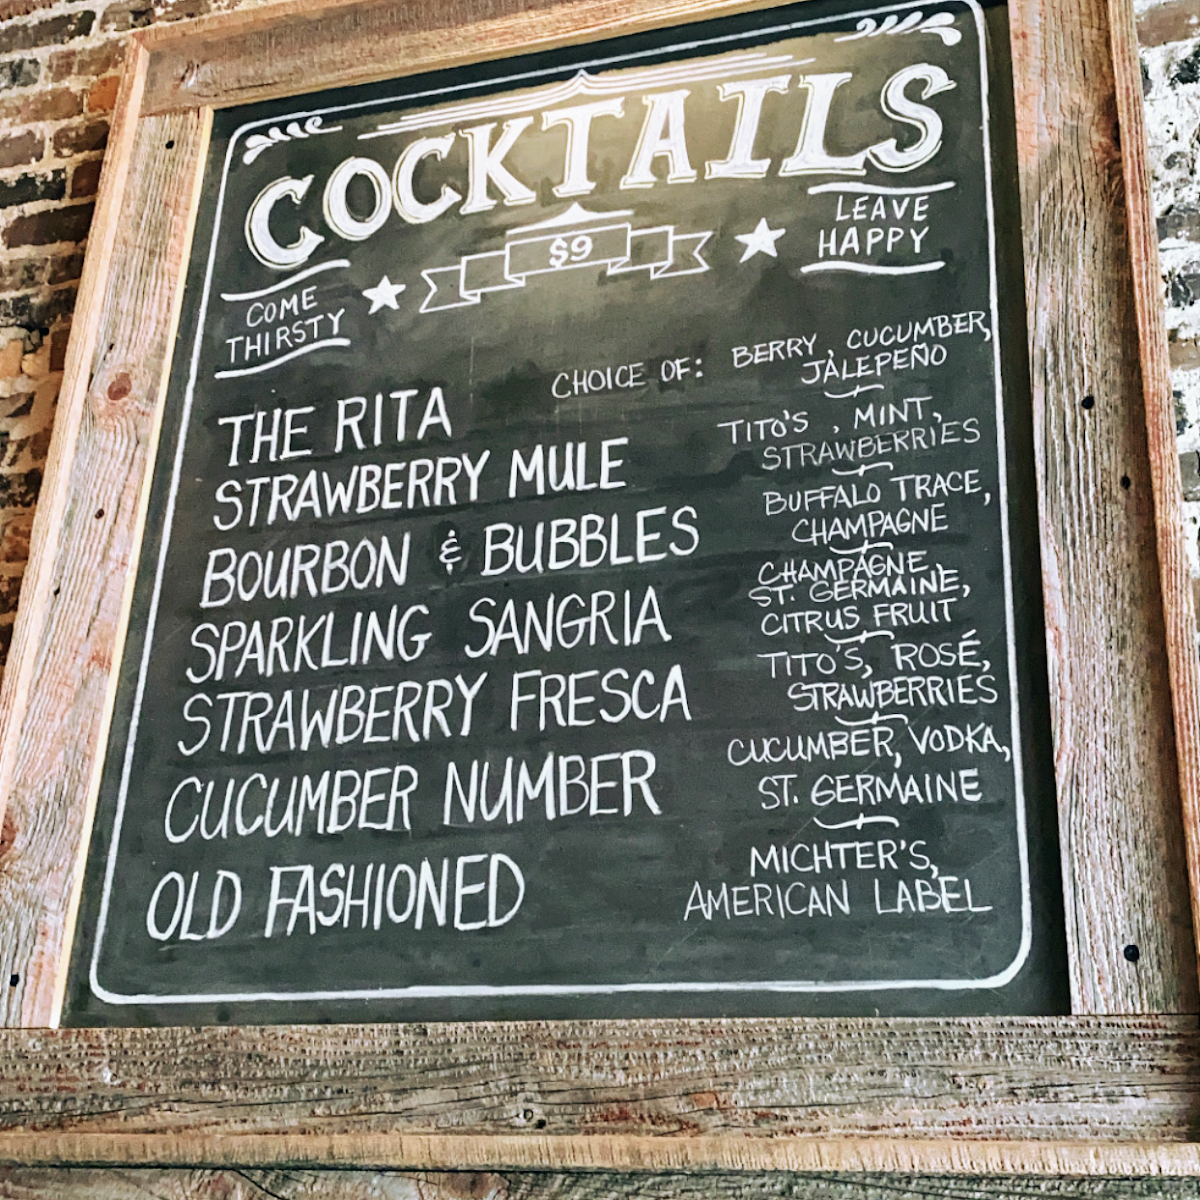 COCKTAILS
$9
COME
THIRSTY
LEAVE
HAPPY
THE RITA
CHOICE OF: BERRY, CUCUMBER,
JALEPEÑO
STRAWBERRY MULE
TITO'S, MINT,
STRAWBERRIES
BOURBON & BUBBLES
BUFFALO TRACE,
CHAMPAGNE
SPARKLING SANGRIA
CHAMPAGNE,
ST. GERMAINE,
CITRUS FRUIT
STRAWBERRY FRESCA
TITO'S, ROSÉ,
STRAWBERRIES
CUCUMBER NUMBER
CUCUMBER, VODKA,
ST. GERMAINE
OLD FASHIONED
MICHTER'S,
AMERICAN LABEL